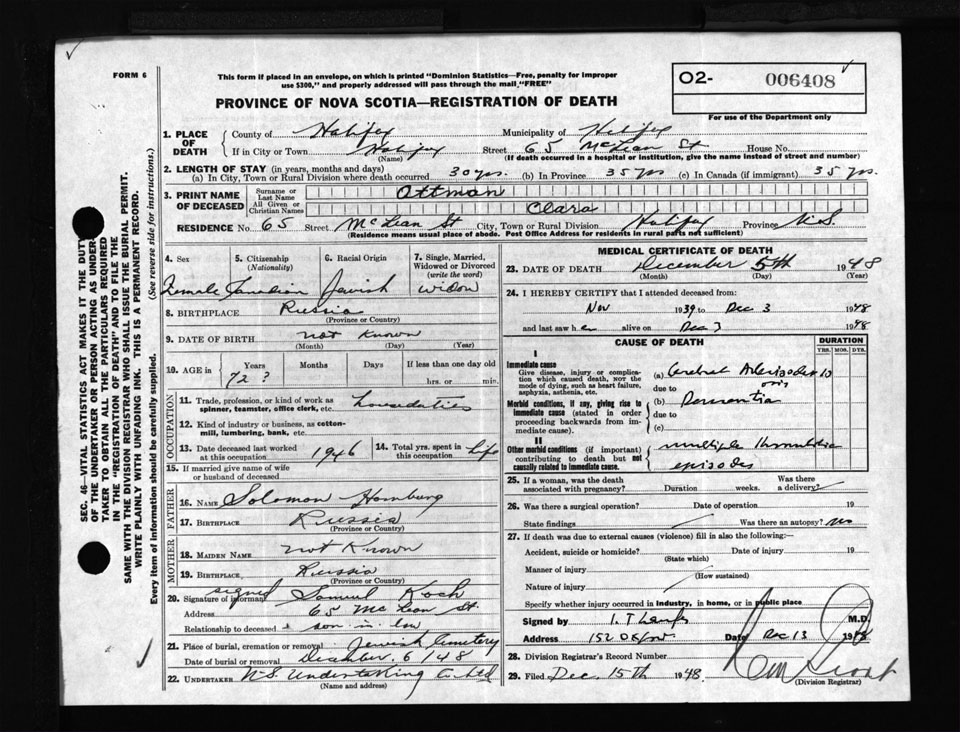 FORM 6
This form if placed in an envelope, on which is printed "Dominion Statistics—Free, penalty for improper
use $300," and properly addressed will pass through the mail, "FREE"
O2- 006408
For use of the Department only
PROVINCE OF NOVA SCOTIA—REGISTRATION OF DEATH
1. PLACE OF DEATH
County of Halifax Municipality of Halifax
If in City or Town Halifax Street 65 McLean St House No.
(Name) (If death occurred in a hospital or institution, give the name instead of street and number)
2. LENGTH OF STAY (in years, months and days)
(a) In City, Town or Rural Division where death occurred 30 yrs. (b) In Province 35 yrs (c) In Canada (if immigrant) 35 yrs.
3. PRINT NAME OF DECEASED
Surname or Last Name Ottman
All Given or Christian Names Clara
RESIDENCE No. 65 Street McLean St City, Town or Rural Division Halifax Province N.S.
(Residence means usual place of abode. Post Office Address for residents in rural parts not sufficient)
4. Sex Female
5. Citizenship (Nationality) Canadian
6. Racial Origin Jewish
7. Single, Married, Widowed or Divorced (write the word) widow
8. BIRTHPLACE Russia
(Province or Country)
9. DATE OF BIRTH not Known
(Month) (Day) (Year)
10. AGE in Years Months Days If less than one day old
72 ? hrs. or min.
OCCUPATION
11. Trade, profession, or kind of work as spinner, teamster, office clerk, etc.
12. Kind of industry or business, as cotton-mill, lumbering, bank, etc.
13. Date deceased last worked at this occupation 1946
14. Total yrs. spent in this occupation life
15. If married give name of wife or husband of deceased
FATHER
16. NAME Solomon Homburg
17. BIRTHPLACE Russia
(Province or Country)
MOTHER
18. MAIDEN NAME not Known
19. BIRTHPLACE Russia
(Province or Country)
signed
20. Signature of informant Samuel Koch
Address 65 McLean St.
Relationship to deceased son in law
21. Place of burial, cremation or removal Jewish Cemetery
Date of burial or removal December 6/48
22. UNDERTAKER N.S. Undertaking Co Ltd
(Name and address)
MEDICAL CERTIFICATE OF DEATH
23. DATE OF DEATH December 5th 1948
(Month) (Day) (Year)
24. I HEREBY CERTIFY that I attended deceased from:
Nov 1939 to Dec 3 1948
and last saw her alive on Dec 3 1948
CAUSE OF DEATH
DURATION
YRS. MOS. DYS.
I
Immediate cause
Give disease, injury or complication which caused death, not the mode of dying, such as heart failure, asphyxia, asthenia, etc.
(a) Cerebral
due to
Morbid conditions, if any, giving rise to immediate cause (stated in order proceeding backwards from immediate cause).
(b)
due to
(c)
II
Other morbid conditions (if important) contributing to death but not causally related to immediate cause.
multiple
episodes
25. If a woman, was the death associated with pregnancy? Duration weeks. Was there a delivery?
26. Was there a surgical operation? Date of operation 19
State findings Was there an autopsy? no
27. If death was due to external causes (violence) fill in also the following:—
Accident, suicide or homicide? Date of injury 19
(State which)
Manner of injury
(How sustained)
Nature of injury
Specify whether injury occurred in industry, in home, or in public place
Signed by M.D.
Address 152 Oxford Date Dec 13 1948
28. Division Registrar's Record Number
29. Filed Dec. 15th 1948.
(Division Registrar)
SEC. 46—VITAL STATISTICS ACT MAKES IT THE DUTY
OF THE UNDERTAKER OR PERSON ACTING AS UNDER-
TAKER TO OBTAIN ALL THE PARTICULARS REQUIRED
IN THE "REGISTRATION OF DEATH" AND TO FILE THE
SAME WITH THE DIVISION REGISTRAR WHO SHALL ISSUE THE BURIAL PERMIT.
WRITE PLAINLY WITH UNFADING INK. THIS IS A PERMANENT RECORD.
Every item of information should be carefully supplied. (See reverse side for instructions.)